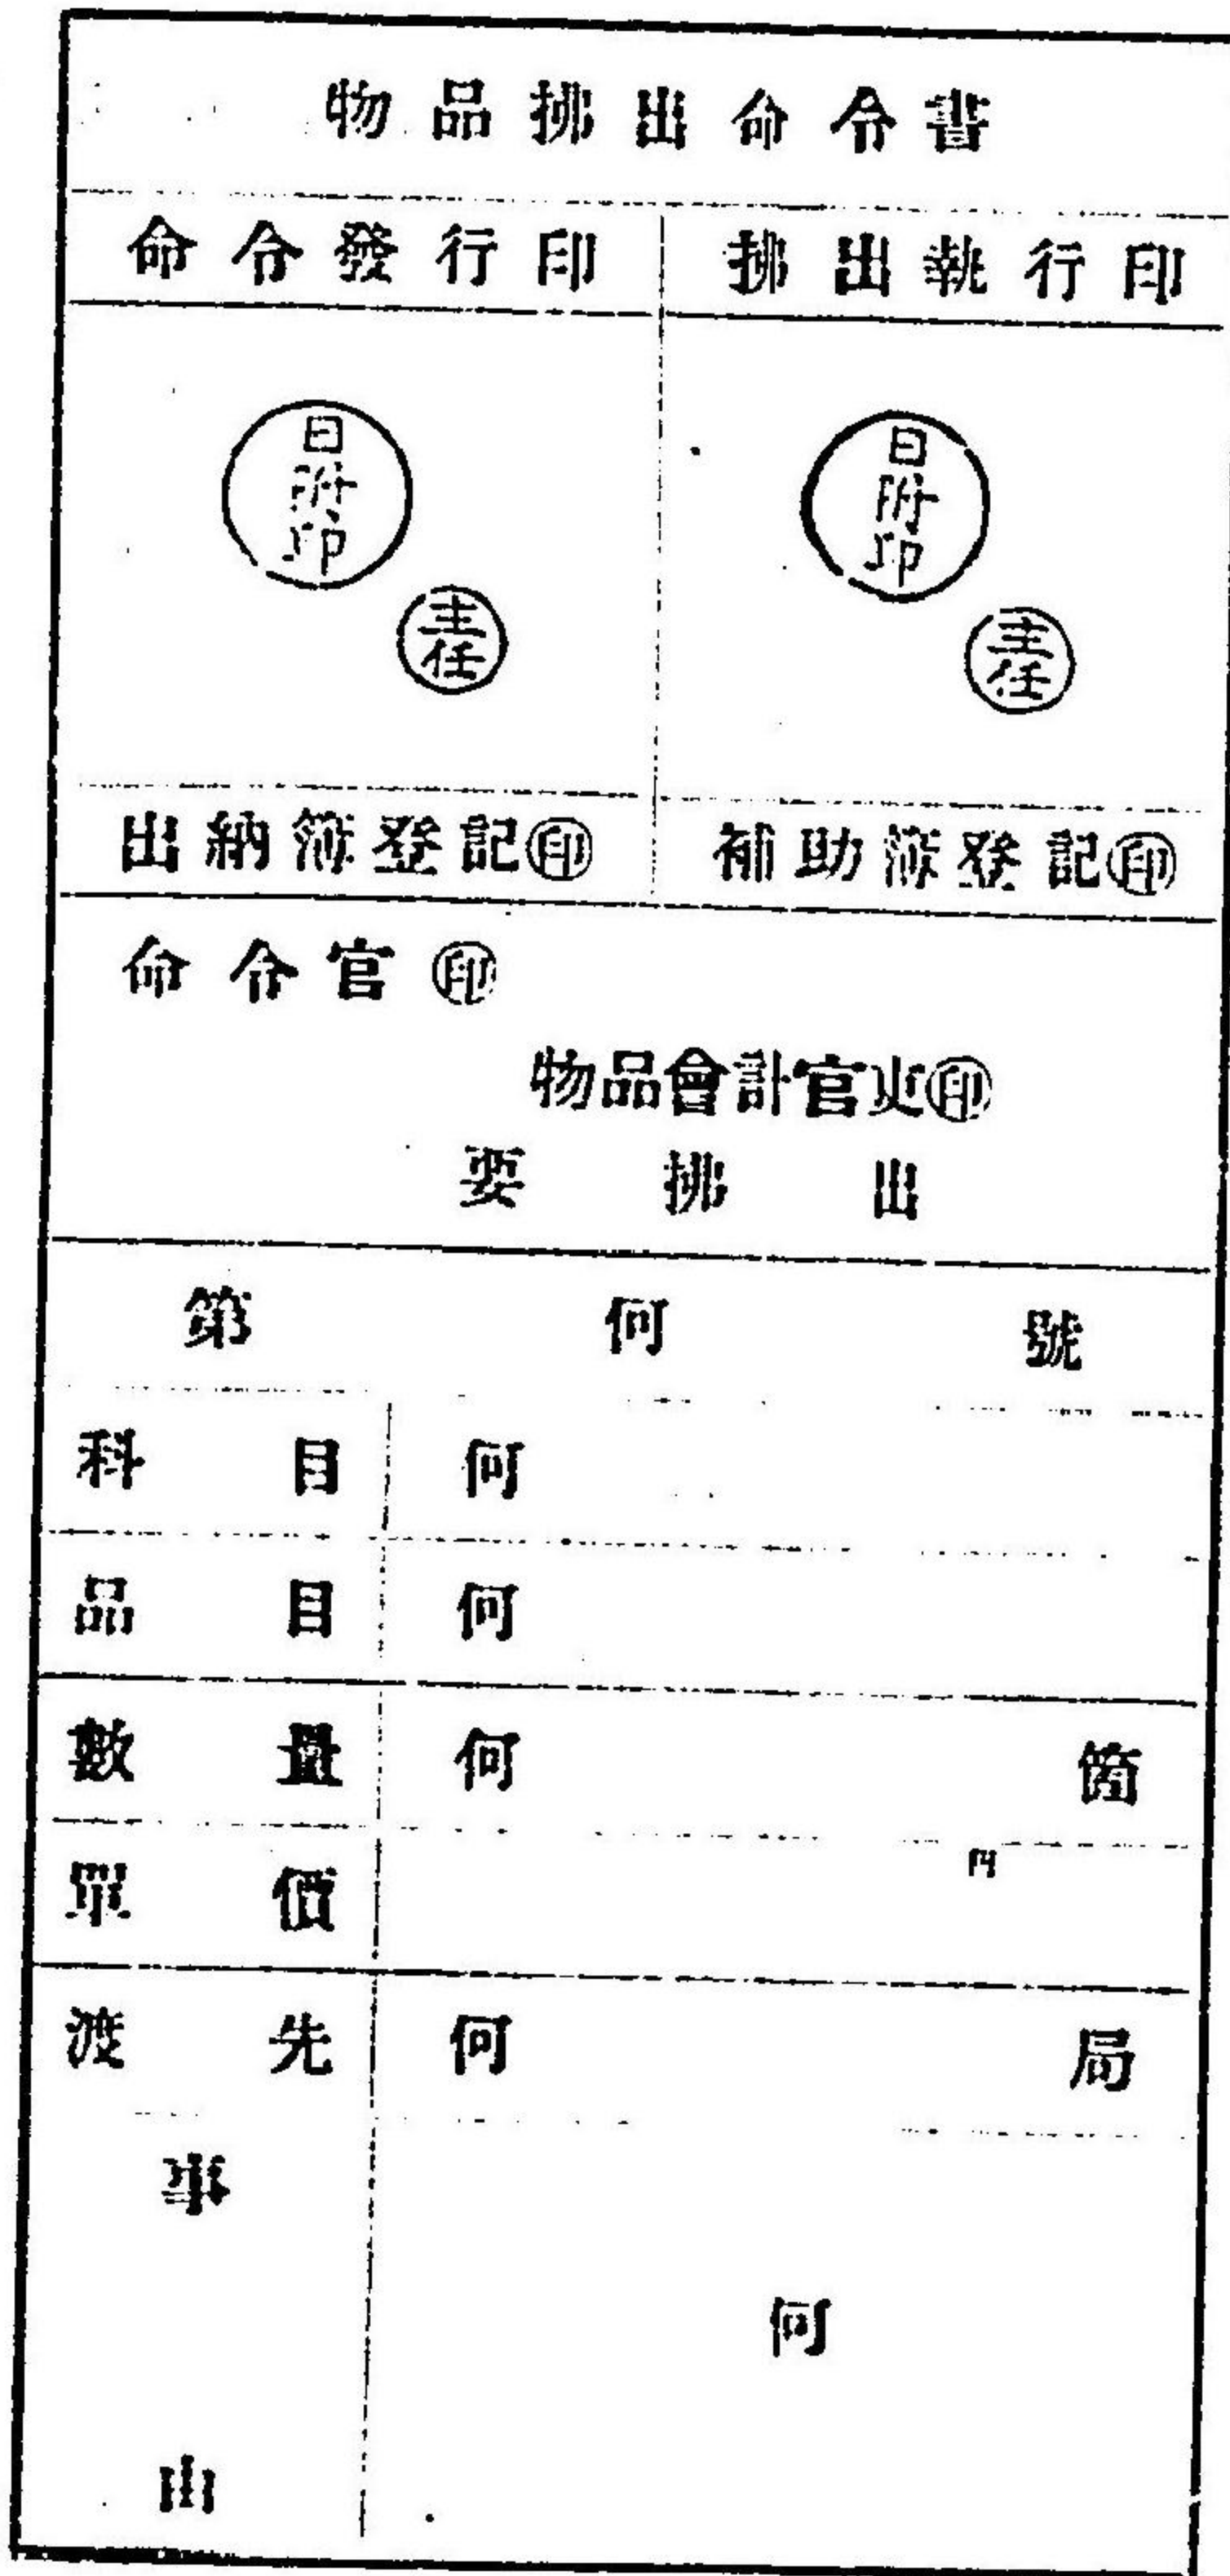 物品拂出命令書
命令發行印 拂出執行印
日附印 日附印
主任 主任
出納簿登記㊞ 補助簿登記㊞
命令官㊞
物品會計官吏㊞
要拂出
第何號
科目 何
品目 何
數量 何 箇
單價 円
渡先 何 局
事由 何